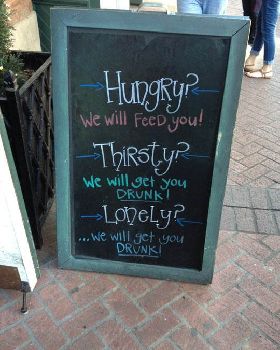 Hungry?
We will FeeD you!
Thirsty?
We will get you
DRUNK!
Lonely?
...we will get you
DRUNK!